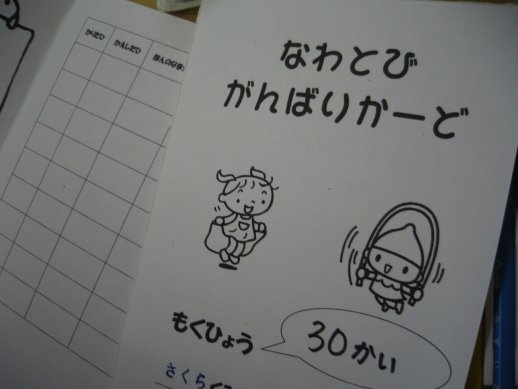 かりたひ かえしたひ ほんのなまえ
なわとび
がんばりかーど
もくひょう
30かい
さくら